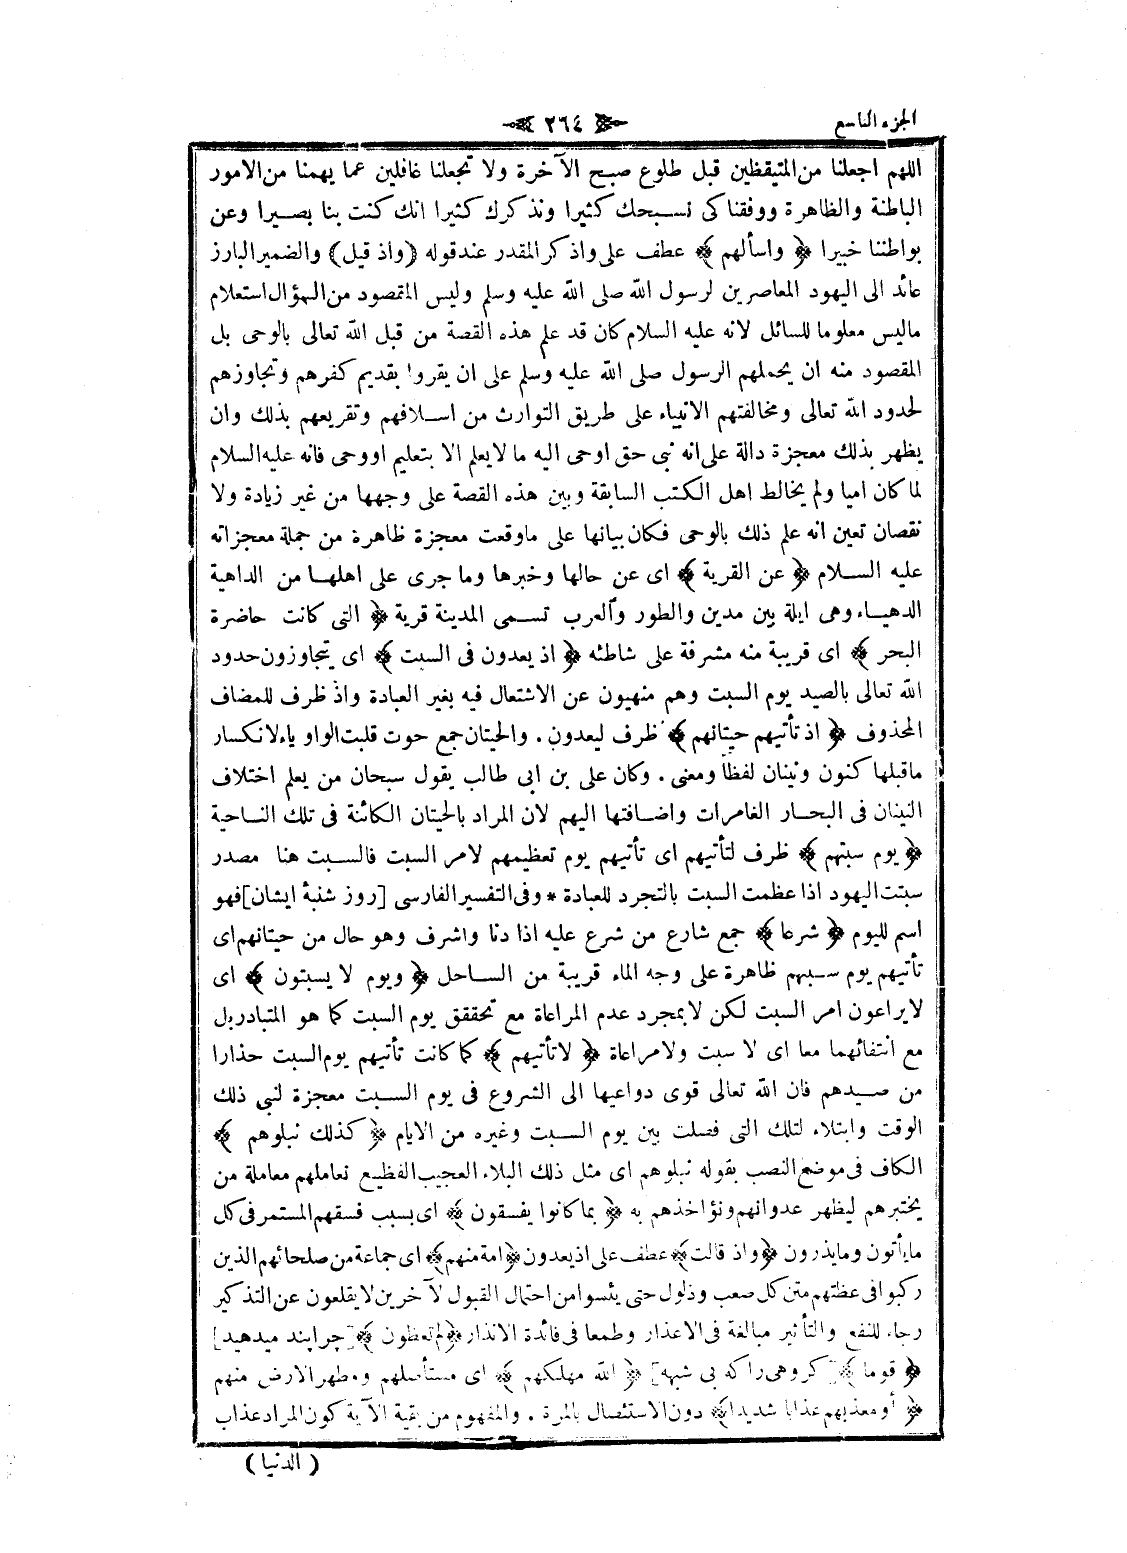 الجزء التاسع
٢٦٤
اللهم اجعلنا من المتيقظين قبل طلوع صبح الآخرة ولا تجعلنا غافلين عما يهمنا من الامور
الباطنة والظاهرة ووفقنا كى نسبحك كثيرا ونذكرك كثيرا انك كنت بنا بصيرا وعن
بواطننا خبيرا ﴿ واسألهم ﴾ عطف على واذكر المقدر عند قوله (واذ قيل) والضمير البارز
عائد الى اليهود المعاصرين لرسول الله صلى الله عليه وسلم وليس المقصود من السؤال استعلام
ماليس معلوما للسائل لانه عليه السلام كان قد علم هذه القصة من قبل الله تعالى بالوحى بل
المقصود منه ان يحملهم الرسول صلى الله عليه وسلم على ان يقروا بقديم كفرهم وتجاوزهم
لحدود الله تعالى ومخالفتهم الانبياء على طريق التوارث من اسلافهم وتقريعهم بذلك وان
يظهر بذلك معجزة دالة على انه نبى حق اوحى اليه ما لا يعلم الا بتعليم اووحى فانه عليه السلام
لما كان اميا ولم يخالط اهل الكتب السابقة وبين هذه القصة على وجهها من غير زيادة ولا
نقصان تعين انه علم ذلك بالوحى فكان بيانها على ماوقعت معجزة ظاهرة من جملة معجزاته
عليه السلام ﴿ عن القرية ﴾ اى عن حالها وخبرها وما جرى على اهلها من الداهية
الدهياء وهى ايلة بين مدين والطور والعرب تسمى المدينة قرية ﴿ التى كانت حاضرة
البحر ﴾ اى قريبة منه مشرفة على شاطئه ﴿ اذ يعدون فى السبت ﴾ اى يتجاوزون حدود
الله تعالى بالصيد يوم السبت وهم منهيون عن الاشتغال فيه بغير العبادة واذ ظرف للمضاف
المحذوف ﴿ اذ تأتيهم حيتانهم ﴾ ظرف ليعدون . والحيتان جمع حوت قلبت الواو ياء لانكسار
ماقبلها كنون ونينان لفظا ومعنى . وكان على بن ابى طالب يقول سبحان من يعلم اختلاف
النينان فى البحار الغامرات واضافتها اليهم لان المراد بالحيتان الكائنة فى تلك الناحية
﴿ يوم سبتهم ﴾ ظرف لتأتيهم اى تأتيهم يوم تعظيمهم لامر السبت فالسبت هنا مصدر
سبتت اليهود اذا عظمت السبت بالتجرد للعبادة * وفى التفسير الفارسى [روز شنبهٔ ايشان] فهو
اسم لليوم ﴿ شرعا ﴾ جمع شارع من شرع عليه اذا دنا واشرف وهو حال من حيتانهم اى
تأتيهم يوم سبتهم ظاهرة على وجه الماء قريبة من الساحل ﴿ ويوم لا يسبتون ﴾ اى
لايراعون امر السبت لكن لا بمجرد عدم المراعاة مع تحققق يوم السبت كما هو المتبادر بل
مع انتفائهما معا اى لا سبت ولا مراعاة ﴿ لا تأتيهم ﴾ كما كانت تأتيهم يوم السبت حذارا
من صيدهم فان الله تعالى قوى دواعيها الى الشروع فى يوم السبت معجزة لنبى ذلك
الوقت وابتلاء لتلك التى فصلت بين يوم السبت وغيره من الايام ﴿ كذلك نبلوهم ﴾
الكاف فى موضع النصب بقوله نبلوهم اى مثل ذلك البلاء العجيب الفظيع نعاملهم معاملة من
يختبرهم ليظهر عدوانهم ونؤاخذهم به ﴿ بما كانوا يفسقون ﴾ اى بسبب فسقهم المستمر فى كل
مايأتون ومايذرون ﴿ واذ قالت ﴾ عطف على اذ يعدون ﴿ امة منهم ﴾ اى جماعة من صلحائهم الذين
ركبوا فى عظتهم متن كل صعب وذلول حتى يئسوا من احتمال القبول لآخرين لا يقلعون عن التذكير
رجاء للنفع والتأثير مبالغة فى الاعذار وطمعا فى فائدة الانذار ﴿ لم تعظون ﴾ [چرا پند ميدهيد]
﴿ قوما ﴾ [كروهى را كه بى شبهه] ﴿ الله مهلكهم ﴾ اى مستأصلهم ومطهر الارض منهم
﴿ أو معذبهم عذابا شديدا ﴾ دون الاستئصال بالمرة . والمفهوم من بقية الآية كون المراد عذاب
( الدنيا )